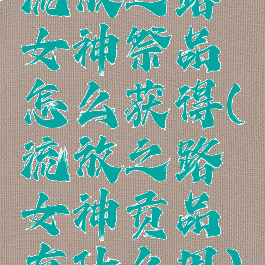 流放之路
女神祭品
怎么获得(
流放之路
女神贡品
有什么用)